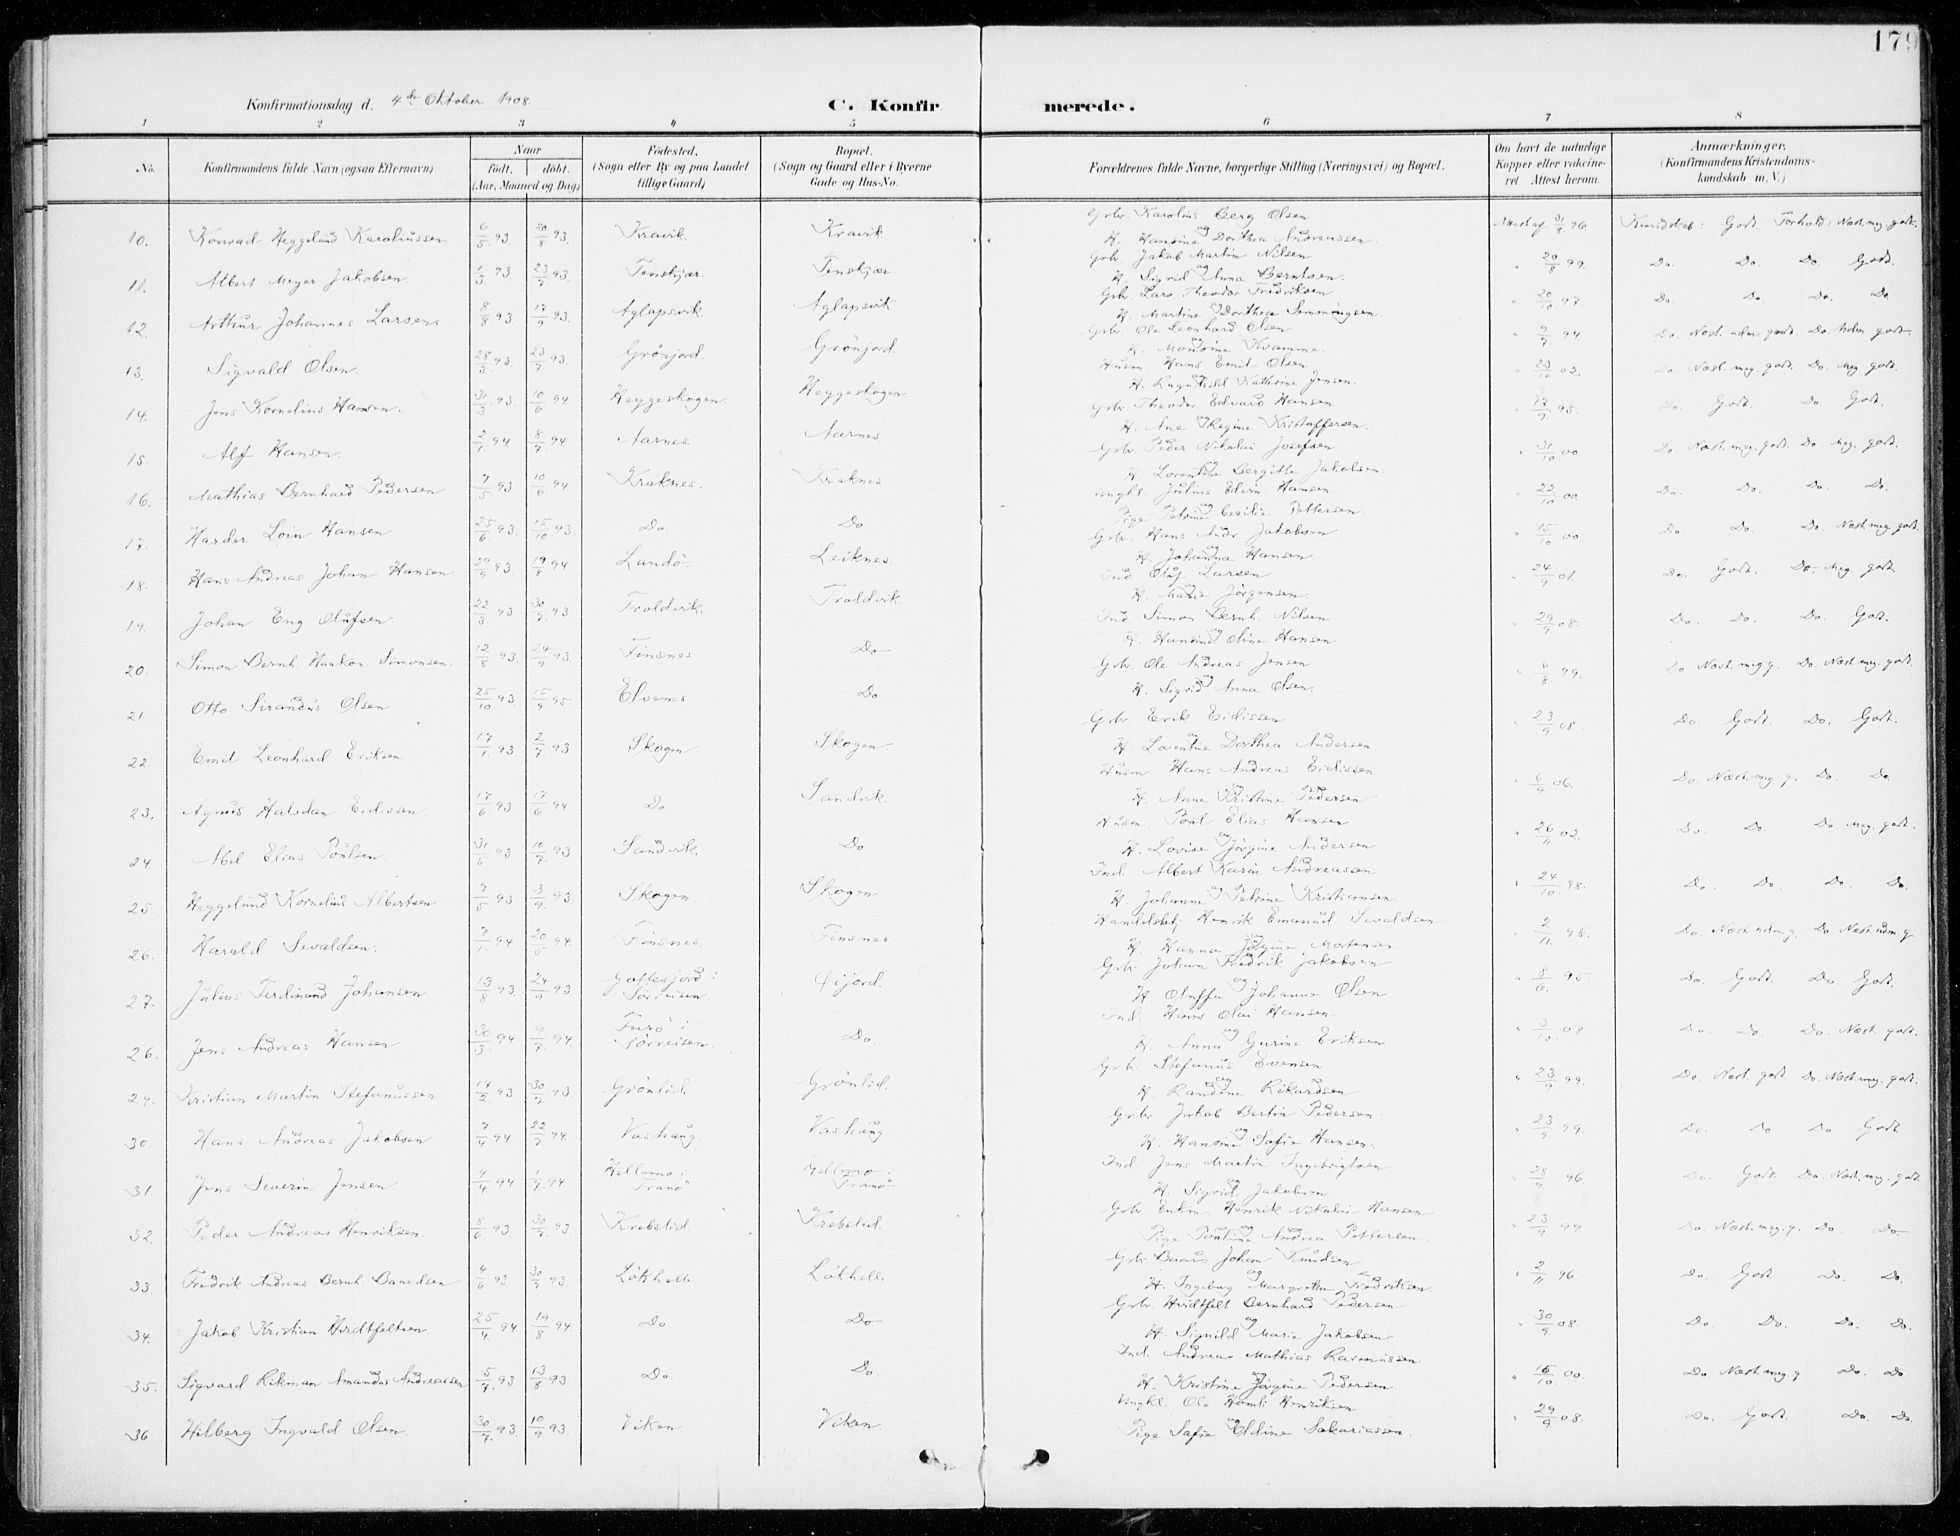 179
Konfirmationsdag d. 4de Oktober 1908.
C. Konfirmerede.
1 2 3 4 5 6 7 8
No. Konfirmandens fulde Navn (ogsaa Efternavn) Naar født. døbt. (Aar, Maaned og Dag) Fødested. (Sogn eller By og paa Landet tillige Gaard) Bopæl. (Sogn og Gaard eller i Byerne Gade og Hus-No. Forældrenes fulde Navne, borgerlige Stilling (Næringsvei) og Bopæl. Om havt de naturlige Kopper eller vakcineret. Attest herom. Anmærkninger. (Konfirmandens Kristendomskundskab m. V.)
10. Konrad Heggelund Karoliussen 6/5 93 20/8 93. Kravik Kravik Gbr. Karolius Berg Olsen og H. Hansine Dorthea Andreassen 96. Kundskab: Godt Forhold: Næst. meg. godt.
11. Albert Meyer Jakobsen 1/3 93 23/7 93. Tenskjær Tenskjær Gbr. Jakob Martin Nilsen og H. Sigrid Anna Berntsen. " 20/8 99. Do. Do. Do. Godt.
12. Arthur Johannes Larsen 8/8 93. 17/9 93. Aglapsvik Aglapsvik Gbr. Lars Theodor Fredriksen og H. Martine Dorthea Simmingsen " 20/10 97. Do. Do. Do. Do.
13. Sigvald Olsen. 28/3 93. 23/7 93. Grönjord. Grönjord. Gbr. Ole Leonhard Olsen og H. Kvamme. " 94 Do. Næst. udm. godt. Do. Udm. godt.
14. Jens Kornelius Hansen. 31/3 93. 10/6 94 Heggeskogen Heggeskogen Husm. Hans Emil Olsen og H. Ragnhild Kathrine Jensen. " 23/10 02. Do. Næst. meg. godt. Do. Meg. godt.
15. Alf Hansen. 2/1 94 8/7 94 Aarnes. Aarnes Gbr. Theodor Edvard Hansen og H. Ane Regine Kristoffersen. " 17/9 95. Do. Godt. Do. Godt.
16. Mathias Bernhard Pedersen 7/5 93 10/6 94 Kraknes. Kraknes Gbr. Peder Nikolai Josefsen og H. Lorentine Bergitte Jakobsen. " 31/10 00 Do. Næst. meg. godt. Do. Meg. godt.
17. Harder Loin Hansen 25/6 93 15/10 93 Do Do Ungkl. Julius Edvin Hansen og Pige Petrine Cecilie Pettersen. " 22/10 00 Do. Do. Do. Do.
18. Hans Andreas Johan Hansen 29/9 93. 19/8 94 Landö. Leiknes. Gbr. Hans Andr. Jakobsen og H. Johanna Hansen. " 15/10 00 Do Do. Do. Næst. meg. godt.
19. Johan Eng Olufsen. 22/3 93 30/7 93. Troldvik. Troldvik. Ind. Oluf Larsen og H. Marie Jörgensen. " 24/9 01. Do. Godt. Do. Meg. godt.
20. Simon Bernh. Haakon Simonsen. 12/8 93. 24/9 93. Finsnes Do Ind. Simon Bernh. Nilsen og H. Hansine Oline Hansen " 29/9 08. Do. Do. Do. Godt.
21 Otto Strandus Olsen 25/10 93. 15/9 95. Elvenes Do Gbr. Ole Andreas Jensen og H. Sigrid Anna Olsen. " 6/8 99. Do Næst. meg. g. Do. Næst. meg. godt.
22. Emil Leonhard Eriksen 17/1 93 2/7 93 Skogen Skogen Gbr. Erik Eidissen og H. Lorentine Dorthea Andersen " 23/9 08. Do. Godt. Do. Godt.
23. Agnus Halvdan Eidissen 17/6 93 17/6 94 Do. Sandvik. Husm. Hans Andreas Eidissen og H. Anne Kristine Pedersen " 6/9 06. Do. Næst. meg. g. Do. Do
24. Abel Elias Poulsen. 31/5 93 10/9 93 Sandvik. Do. Husm. Poul Elias Hansen og H. Lovise Jörgine Andersen " 26/11 02. Do. Do. Do. Meg. godt.
25. Heggelund Kornelius Albertsen 7/5 93 3/9 93. Skogen Skogen Ind. Albert Karin Andreassen og H. Johanne Petrine Kristiansen. " 24/10 98. Do. Do. Do. Do.
26. Harald Sevaldsen. 7/1 94 20/5 94. Finsnes. Finsnes Handelsbetj. Henrik Emanuel Sevaldsen og H. Hanna Jörgine Mortensen " 2/11 96. Do. Næst. udm. g. Do Næst. udm. g.
27. Julius Ferdinand Johansen 13/8 93. 24/9 93. Gottesjord i Sörreisen. Gbr. Johan Fredrik Jakobsen og H. Oluffa Johanne Olsen " 8/6 95. Do. Godt. Do. Godt.
28. Jens Andreas Hansen 30/3 94 94. Furö i Sörreisen. Do. Ind. Hans Olai Hansen og H. Anna Gurine Eriksen " 3/10 08. Do. Do Do. Næst. godt.
29. Kristian Martin Stefanussen 17/2 93 30/7 93. Grönlid. Grönlid. Gbr. Stefanus Evensen og H. Randine Rikardsen " 23/9 99. Do. Næst. godt. Do. Næst. meg. godt.
30. Hans Andreas Jakobsen 7/4 94 22/7 94. Vashaug Vashaug Gbr. Jakob Bertin Pedersen og H. Hansine Sofie Hansen. " 23/9 99. Do. Do Do. Godt
31. Jens Severin Jensen 94 1/7 94 Hellemo i Tranö Hellemo i Tranö Ind. Jens Martin Ingebrigtsen og H. Sigrid Jakobsen. " 96. Do. Godt Do. Næst. meg. godt
32. Peder Andreas Henriksen. 8/6 93 30/7 93. Krebslid Krebslid Gbr. Enkm. Henrik Nikolai Hansen og Pige Pauline Andrea Pettersen. " 23/9 99 Do. Næst. meg. g. Do. Do
33. Fredrik Andreas Bernh. Baardsen 4/6 93 30/7 93 Lökhelle Lökhelle Gbr. Baard Johan Knudsen og H. Ingeborg Margrethe Fredriksen " 2/11 96. Do. Godt Do. Do.
34. Jakob Kristian Hvidtfeltsen 25/4 94. 19/8 94. Do. Do Gbr. Hvidtfelt Bernhard Pedersen og H. Signild Marie Jakobsen " 30/9 08. Do. Do. Do. Do.
35. Sigvard Rikman Amandus Andreassen 5/7 93 13/8 93. Do. Do. Ind. Andreas Mathias Rasmussen og H. Kristine Jörgine Pedersen. " 16/10 00. Do Næst. meg. g Do. Do
36 Hilberg Ingvald Olsen. 30/7 93 10/9 93. Viken Viken Ungkl. Ole Hemli Henriksen og Pige Sofie Eldine Sakariassen. " 29/9 08. Do. Godt. Do. Do.